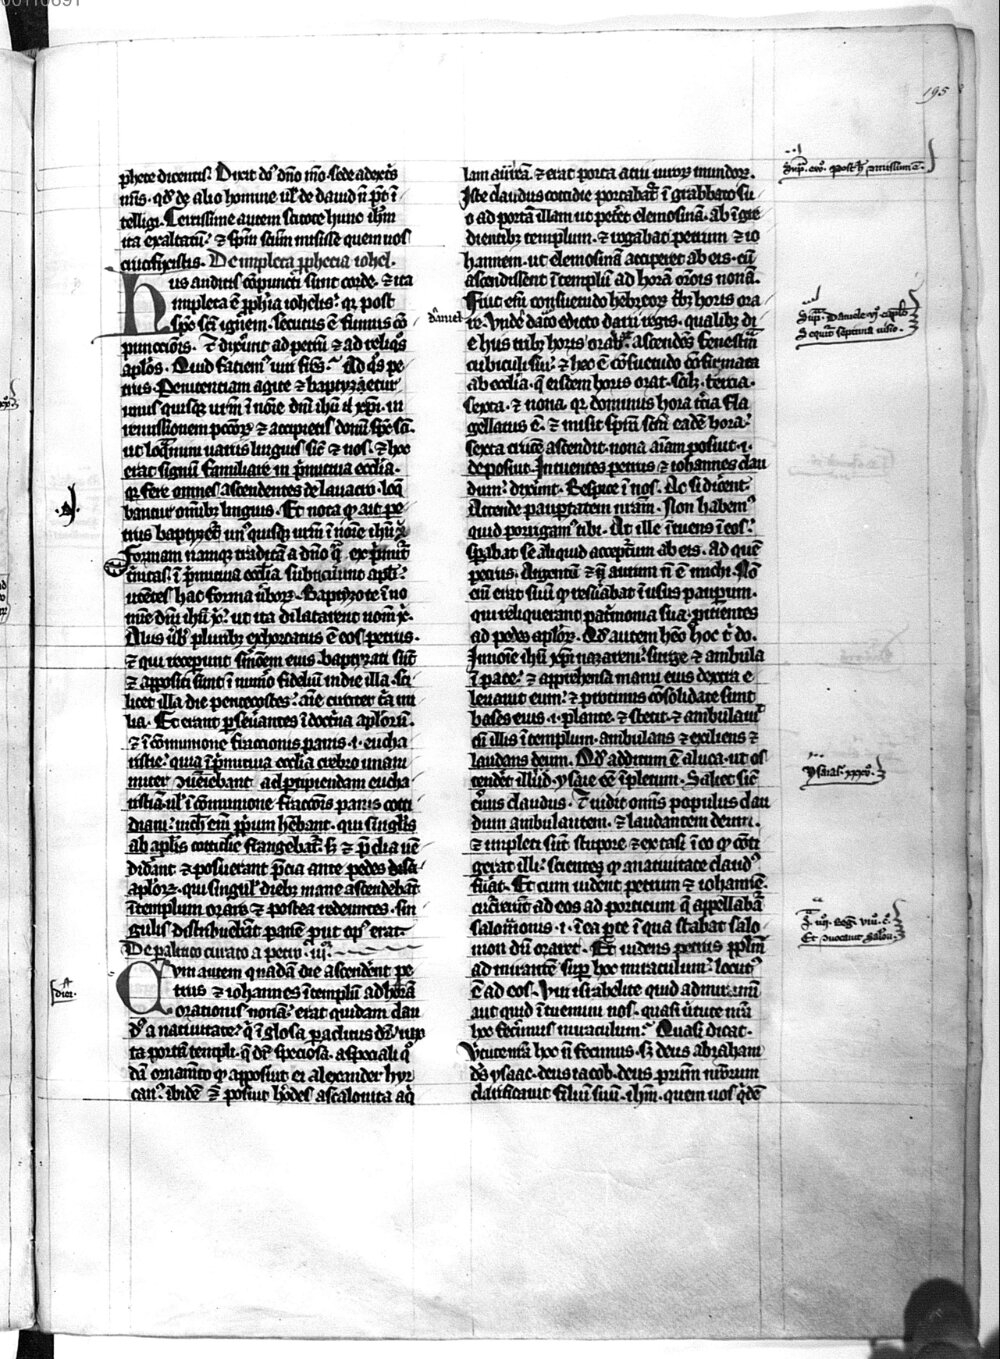 195
ꝓphete dicentis: Dixit dn̄s dño mō sede a dextris
mīs. qd̄ de alio homine ul̓ de dauid n̄ pōt ī
telligi. Certissime autem scitote hunc ih̄m
ita exaltatū: ⁊ sp̄m sc̄m misisse quem uos
crucifixistis. De impleta ꝓphecia iohel.
Hiis auditis cōpuncti sunt corde. ⁊ ita
impleta ē ꝓph̄ia iohelis: qꝛ post
sp̄c sc̄i ignem. secutus ē fumus cō
punccōis. ⁊ dixerūt ad petrū ⁊ ad reliqͦs
apl̄os. Quid faciemꝰ uiri fr̄s: Ad qͦs pe
trus. Penitentiam agite ⁊ baptizaetur
unus quisqꝫ ur̄m ī nōie dn̄i ih̄u xp̄i. in
remissionem pccōꝝ ⁊ accipietis donū sp̄c sc̄i.
ut loqͣnmini uariis linguis sic̄ ⁊ nos. ⁊ hoc
erat signū familiare in p̄mitiua eccl̄ia.
qꝛ fere omnes ascendentes de lauacro. loq̄
bantur omībꝫ linguis. Et nota qͦ ait pe
trus baptizet̄ unꝰ quisqꝫ ur̄m ī nōie ih̄u xͥ
Formam namqꝫ traditā a dño
t̄nitas. ī p̄mitiua eccl̄ia subticuerunt apl̄i:
utētes hac forma ūboꝝ. Baptizo te ī no
mīe dn̄i ih̄u xͥ: ut ita dilataretur nom̄ xͥ.
Aliis ūbꝭ pluribꝫ exhortatus ē eos petrus.
⁊ qui receperunt sm̄onem eius. baptizati sūt
⁊ appositi sunt ī num̄o fidelium in die illa sci
licet illa die pentecostes: aīe circiter tͥa mi
lia. Et erant ꝑseuantes ī doctͥna apl̄orū.
⁊ ī cōmunione fraccionis panis .i. eucha
ristie: quia ī p̄mitiua eccl̄ia crebro unam
miter ꝯueniebant ad ꝑcipiendam eucha
ristiā. ul̓ ī cōmunione fraccōis panis coti
diani: nich̄ eīm ꝓprium hēbant. qui singl̄is
ab apl̄is cotidie frangebat̄. ⁊ p̄dia uē
didant ⁊ posuerant p̄cia ante pedes
apl̄oꝝ. qui singul̓ diebꝫ mane ascendebāt
ī templum orare ⁊ postea redeuntes. sin
gulis distribuebāt panē put opꝰ erat
De palitico curato a petro. iijͣ.
Cvm autem quadā die ascenderēt pe
trus ⁊ iohannes ī templū ad horā
orationis nonā: erat quidam clau
dꝰ a natiuitate: q̄ ī glosa paraliticus dꝛ iuxͣ
ta portā templi. q̄ dꝛ speciosa. a speciali qͦ
dā ornam̄to qͦ apposuit ei alexander hyr
canꝰ. ibidē ⁊ posuit h̄odes ascalonita aq̄
lam aureā. ⁊ erat porta atrii uiroꝝ mundoꝝ.
Iste claudus cotidie portabat̄ ī grabbato su
o ad portā illam ut petet elemosinā. ab īgre
dientibꝫ templum. ⁊ rogabat petrum ⁊ io
hannem. ut elemosinā acciperet ab eis. cū
ascendissent ī templū ad horā orōis nonā.
Fuit eīm consuetudo hebreoꝝ tͥbꝫ horis ora
re. Vnde dato edicto darii regis. qualibꝫ di
e hiis tribꝫ horis orabͣt ascendēs fenestrā
cubiculi sui. ⁊ hec ē cōsuetudo cōfirmata
ab eccl̄ia. q̄ eisdem horis orat. scilꝫ. tercia.
sexta. ⁊ nona. qꝛ dominus hora tͥcia fla
gellatus ē. ⁊ misit sp̄m sc̄m eadē hora.
sexta crucē ascendit. nona aīam posuit .i.
deposuit. Intuentes petrus ⁊ iohannes clau
dum: dixerunt. Respice ī nos. Ac si dicent:
Attende paupertatem nr̄am. Non habemꝰ
quid porrigamꝰ tibi. At ille ītuens ī eos:
sꝑabat se aliquid accepturum ab eis. Ad quē
petrus. Argentū ⁊ aurum n̄ ē michi. Nō
eīm erat suū qͦ reseruabat ī usus pauperum.
qui reliquerant patͥmonia sua. proicientes
ad pedes apl̄oꝝ. Qd̄ autem hēo hoc tͥ do.
In nōie ih̄u xp̄i nazareni: surge ⁊ ambula
ī pace: ⁊ apprehensa manu eius dextra e
leuauit eum: ⁊ protinus cōsolidate sunt
bases eius .i. plante. ⁊ stetit. ⁊ ambulauit
cū illis ī templum. ambulans ⁊ exiliens ⁊
laudans deum. Qd̄ additum ē a luca. ut os
tendēt illud. ysaie eē īpletum. Saliet sic̄
ceruus claudus. Et uidit omīs populus clau
dum ambulantem. ⁊ laudantem deum.
⁊ impleti sunt stupore ⁊ extasi ī eo qͦ cōti
gerat illi: scientes qͦ a natiuitate claudꝰ
fūat. Et cum uiderent petrum ⁊ iohannē.
cucurrerunt ad eos ad porticum q̄ appellabāt̄
salomonis .i. ī ea ꝑte ī qua stabat salo
mon dū oraret. Et uidens petrus pplm̄
ad mirantē suꝑ hoc miraculum: locutꝰ
ē ad eos. Viri israhelite quid admiramīi
aut quid ītuemini nos. quasi ūtute nr̄a
hoc fecimus miraculum: Quasi dicat.
Ꝟtute nr̄a hoc n̄ fecimus. sꝫ deus abraham
ds̄ ysaac. deus iacob. deus patrum nr̄orum
clarificauit filiū suū. ih̄m. quem uos qͥdē
daniel
dicit̄.
Sup. Daniele. vj. capłō
Sequit̄ septima uisio.
ysaias. xxxv.
iij. Reg. viij. c.
Et ꝯuocauit salōn.